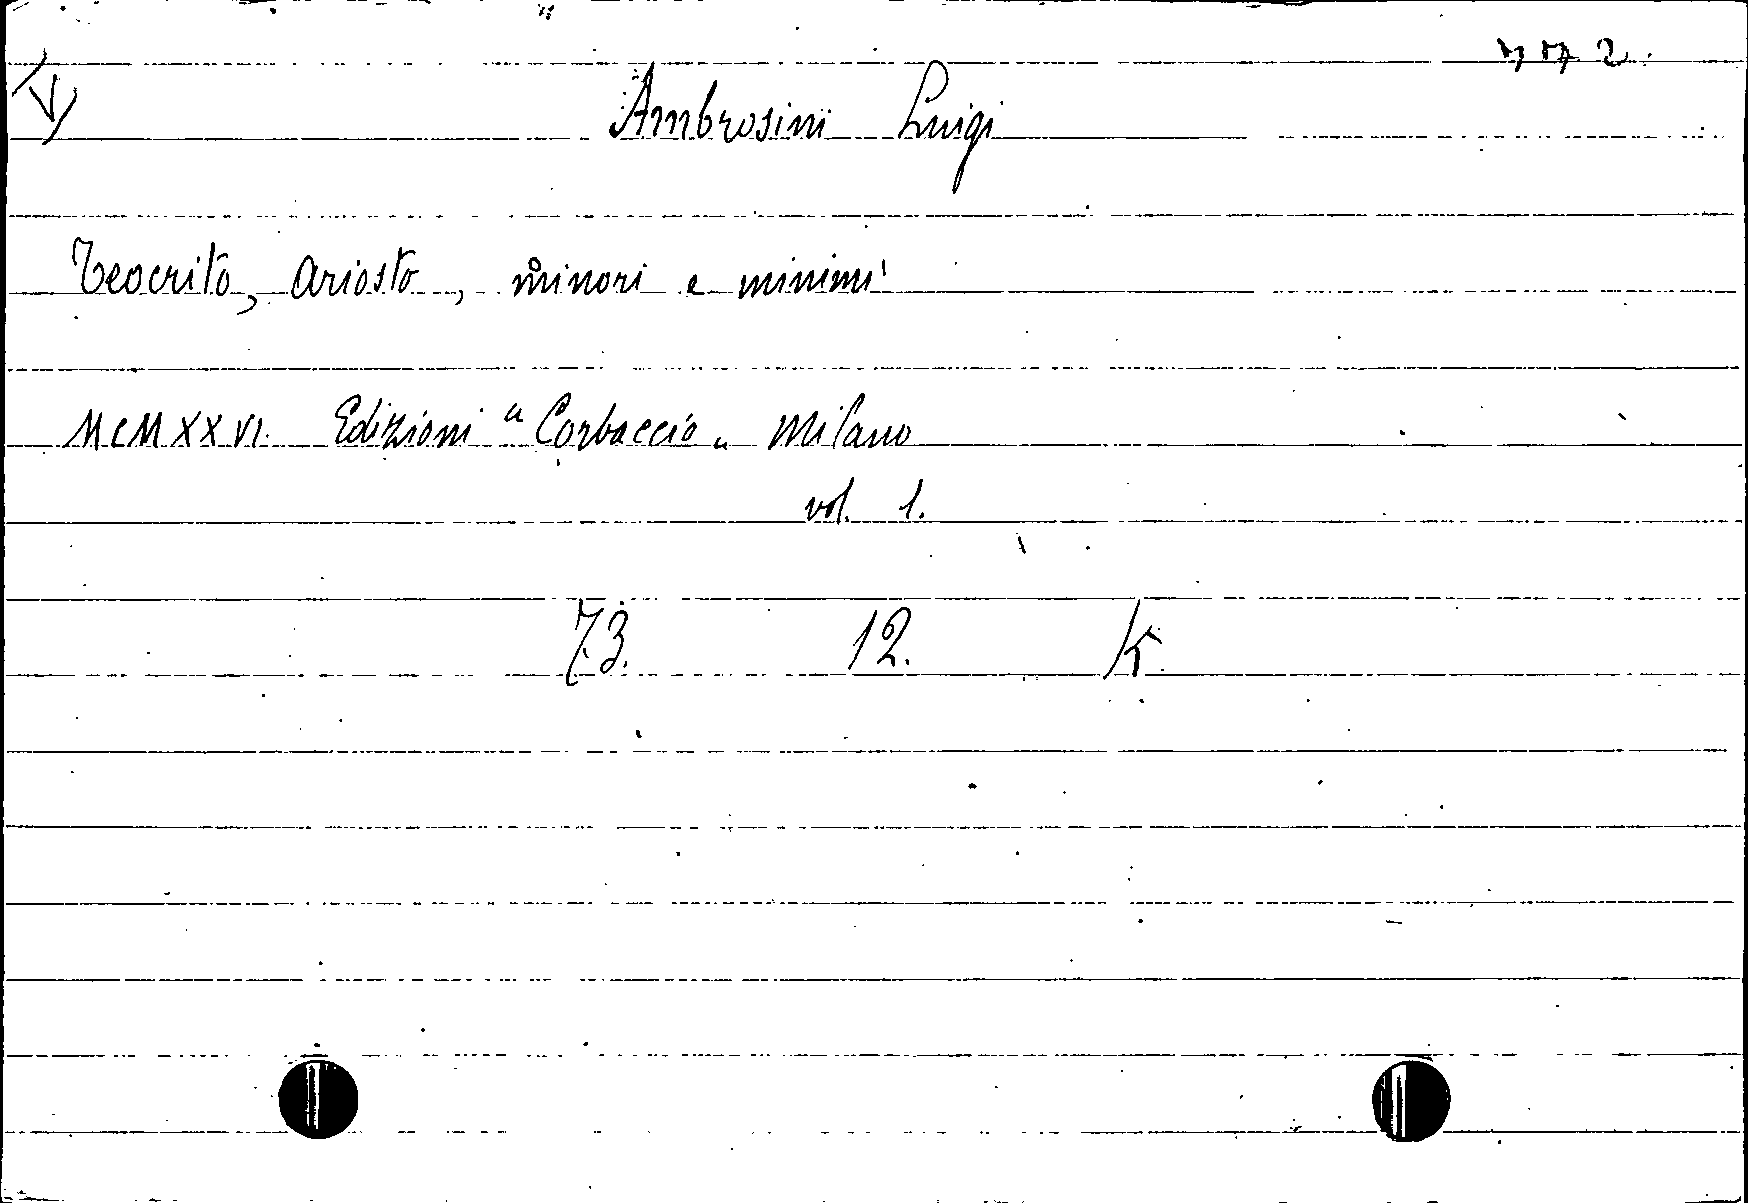 Ambrosini Luigi
Teocrito, Ariosto, minori e minimi
MCMXXVI. Edizioni "Corbaccio" Milano
vol. 1.
73. 12. K